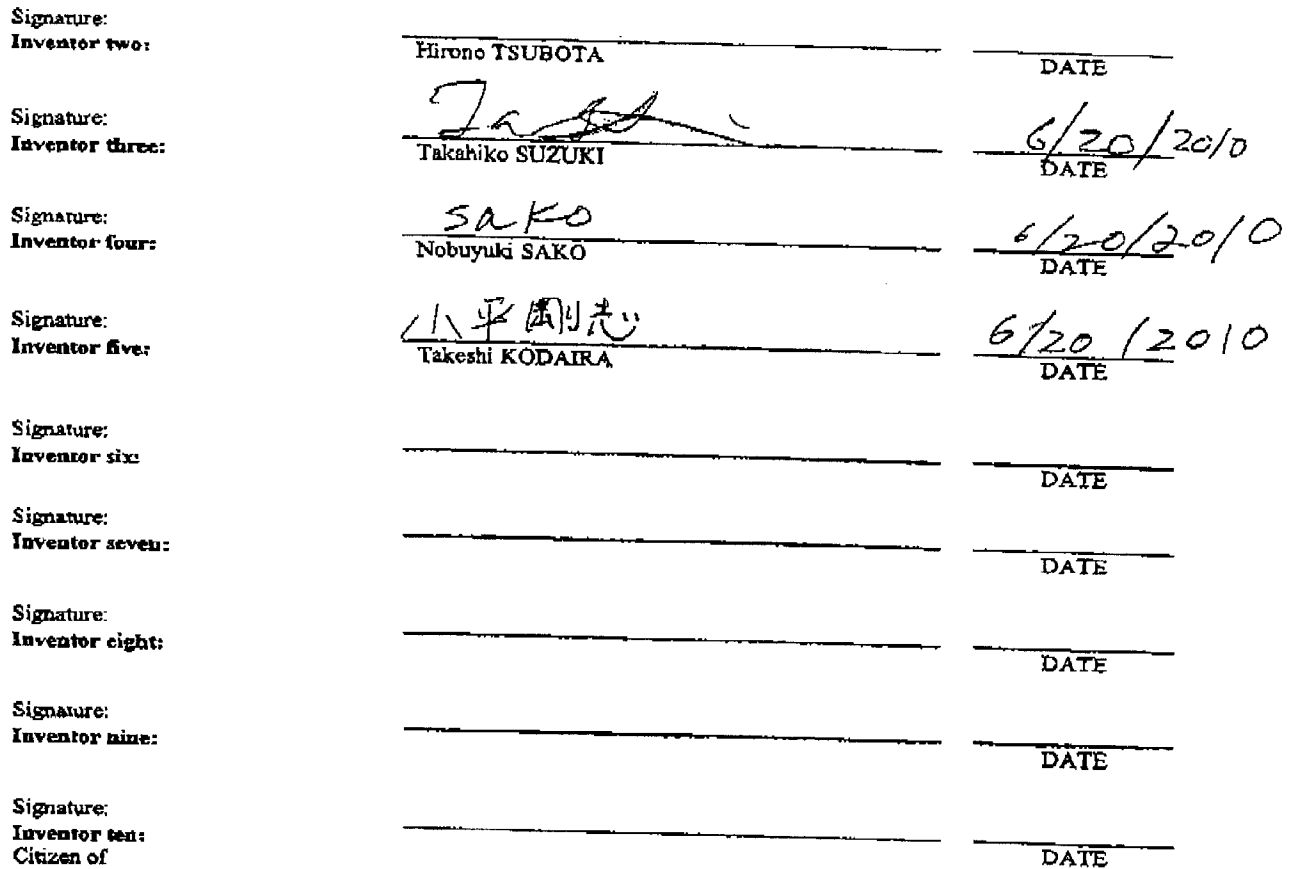 Signature:
Inventor two:
Hirono TSUBOTA DATE
Signature:
Inventor three: 6/20/2010
Takahiko SUZUKI DATE
Signature: Sako
Inventor four: 6/20/2010
Nobuyuki SAKO DATE
Signature: 小平剛志
Inventor five: 6/20/2010
Takeshi KODAIRA DATE
Signature:
Inventor six:
DATE
Signature:
Inventor seven:
DATE
Signature:
Inventor eight:
DATE
Signature:
Inventor nine:
DATE
Signature:
Inventor ten:
Citizen of DATE